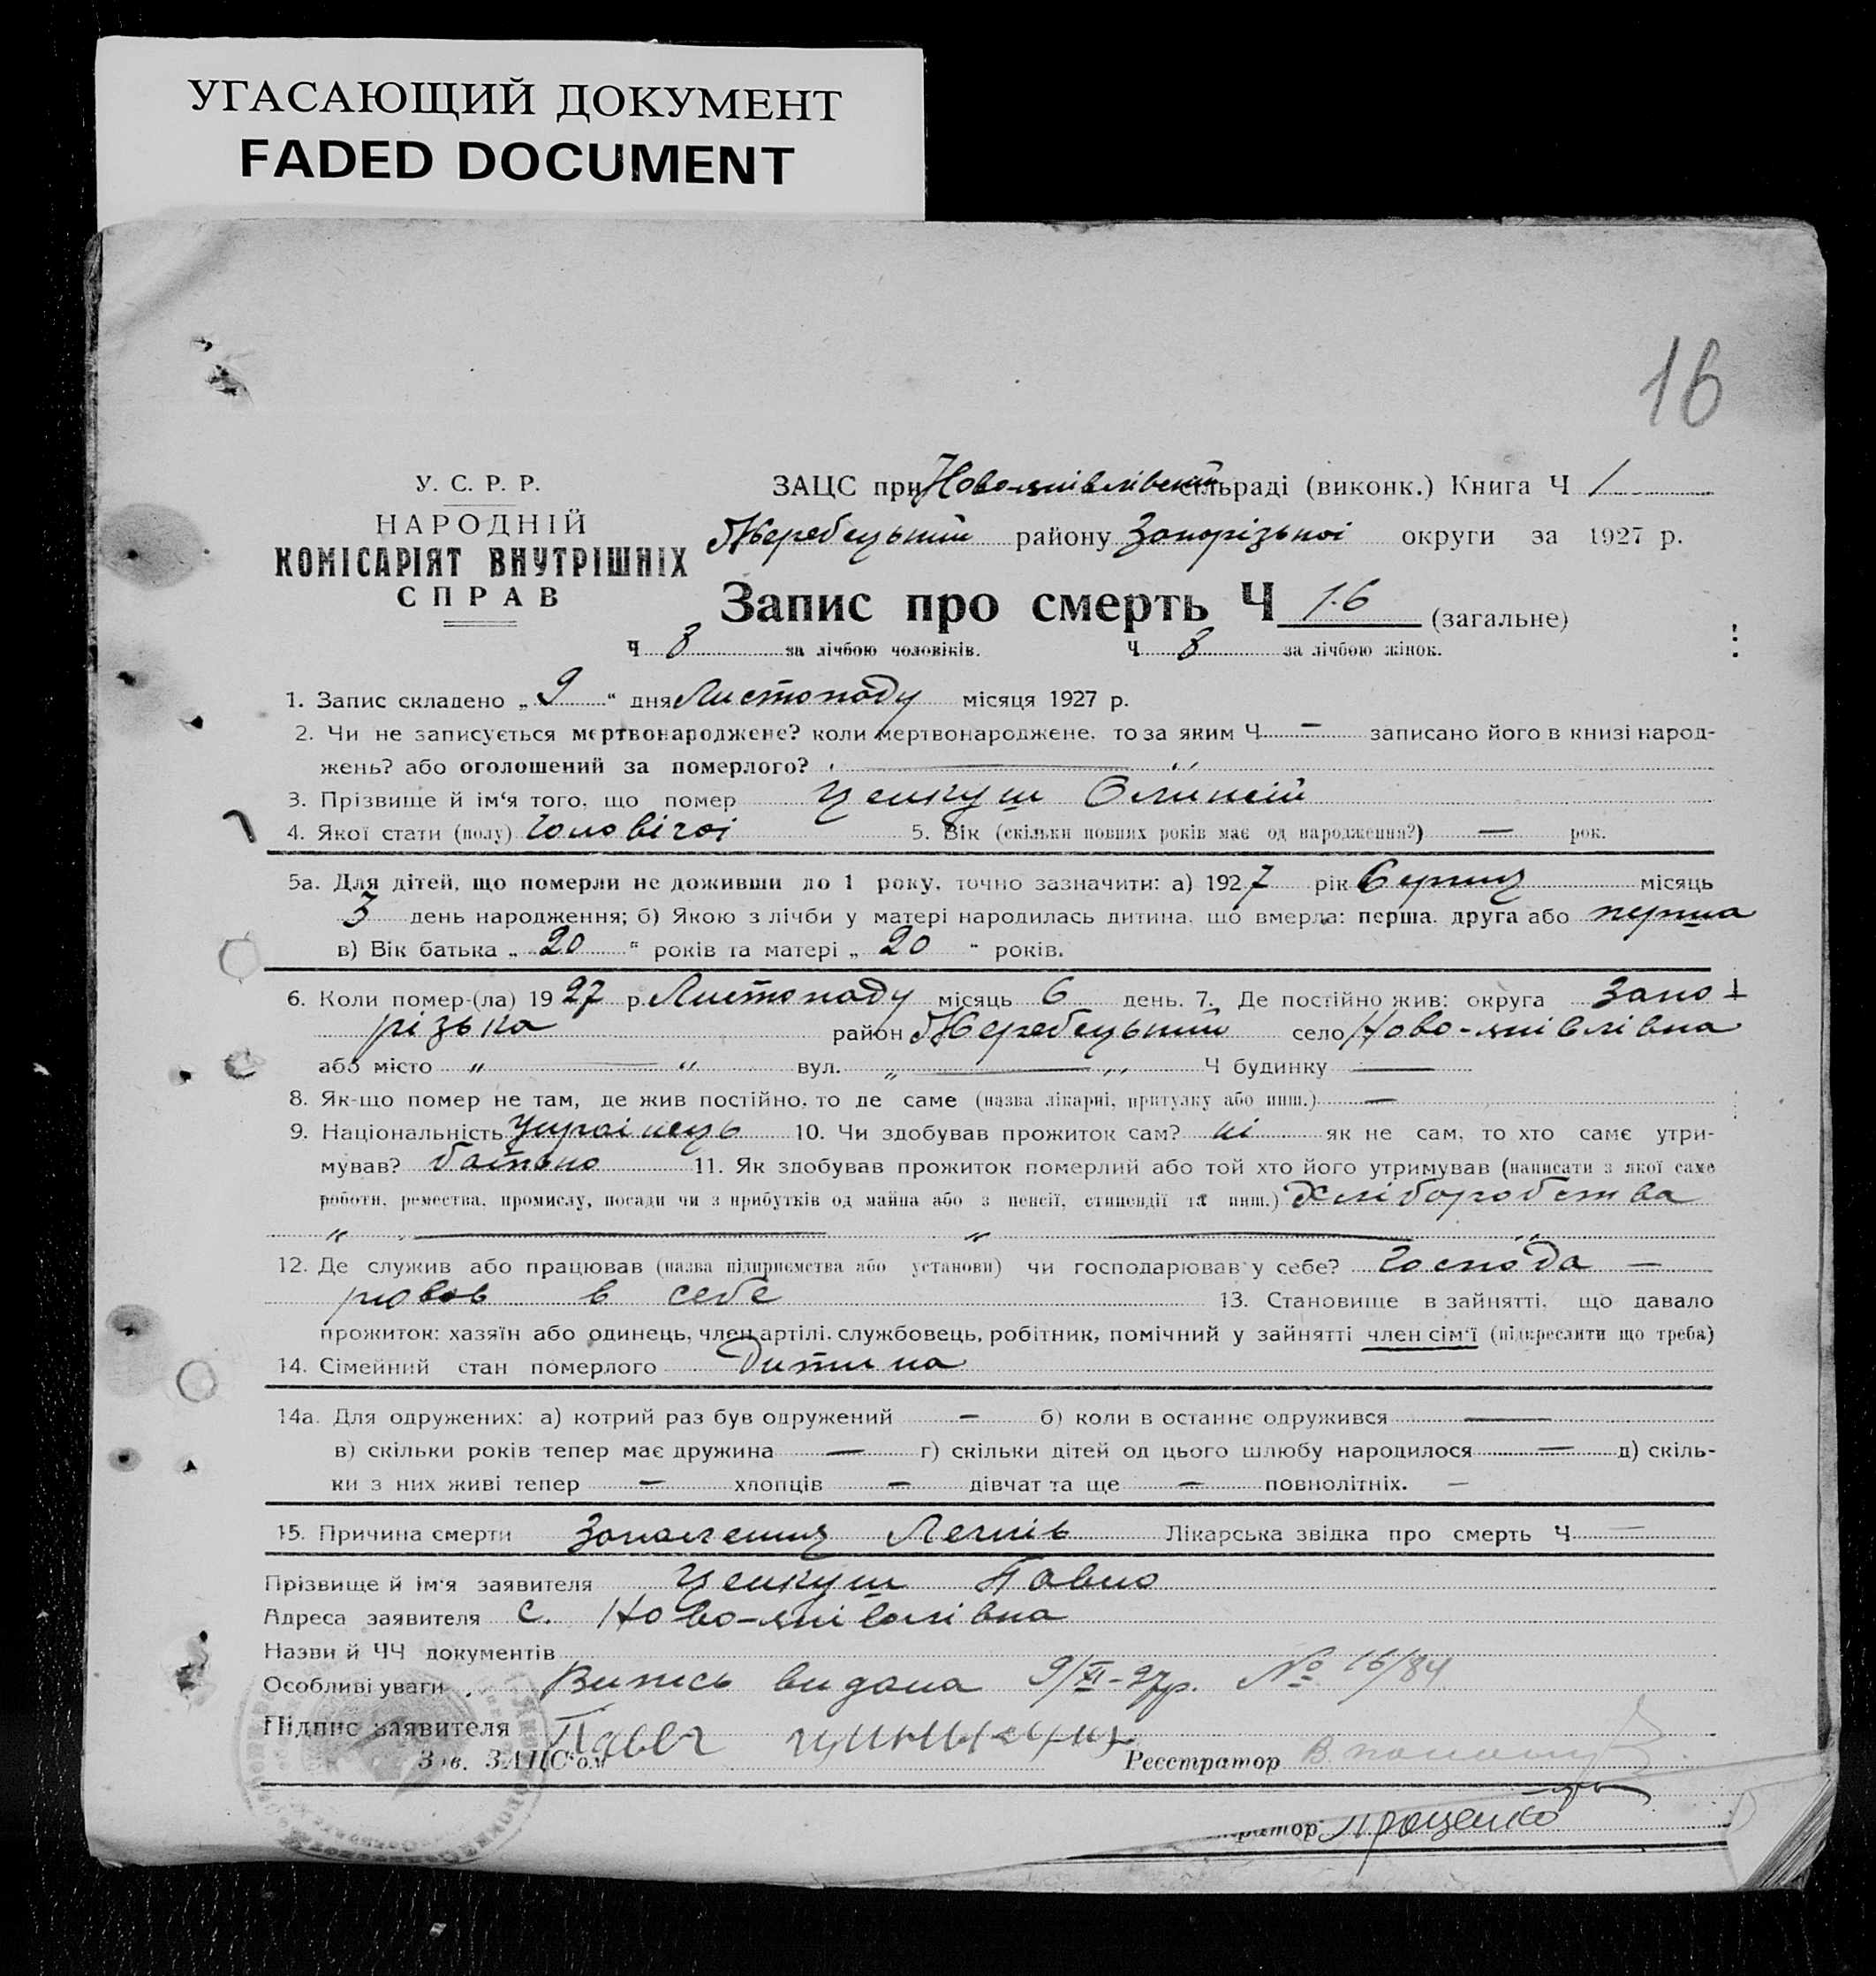 УГАСАЮЩИЙ ДОКУМЕНТ
FADED DOCUMENT
16
У. С. Р. Р.
НАРОДНІЙ
КОМІСАРІЯТ ВНУТРІШНІХ
СПРАВ
ЗАЦС при сільраді (виконк.) Книга Ч 1
Жеребецький району Запорізької округи за 1927 р.
Запис про смерть Ч 16 (загальне)
Ч 8 за лічбою чоловіків. Ч 8 за лічбою жінок.
1. Запис складено „ 9 “ дня Листопаду місяця 1927 р.
2. Чи не записується мертвонароджене? коли мертвонароджене, то за яким Ч — записано його в книзі народ-
жень? або оголошений за померлого? „ — “
3. Прізвище й ім‘я того, що помер Цепкуш Олипій
4. Якої стати (полу) Чоловічої 5. Вік (скільки повних років має од народження?) — рок.
5а. Для дітей, що померли не доживши до 1 року, точно зазначити: а) 1927 рік Серпня місяць
3 день народження; б) Якою з лічби у матері народилась дитина, що вмерла: перша, друга або перша
в) Вік батька „ 20 “ років та матері „ 20 “ років.
6. Коли помер-(ла) 1927 р. Листопаду місяць 6 день. 7. Де постійно жив: округа Запо
різька район Жеребецький село Ново-янівлівка
або місто „ — “ вул. „ — „ Ч будинку —
8. Як-що помер не там, де жив постійно, то де саме (назва лікарні, притулку або инш.) —
9. Національність Українець 10. Чи здобував прожиток сам? ні як не сам, то хто самє утри-
мував? батько 11. Як здобував прожиток померлий або той хто його утримував (написати з якої саме
роботи, ремества, промислу, посади чи з прибутків од майна або з пенсії, стипендії та инш.) Хліборобства
„ — „ — „
12. Де служив або працював (назва підприємства або установи) чи господарював у себе? Господа —
рював в себе 13. Становище в зайнятті, що давало
прожиток: хазяїн або одинець, член артілі, службовець, робітник, помічний у зайнятті член сім‘ї (підкреслити що треба)
14. Сімейний стан померлого Дитина
14а. Для одружених: а) котрий раз був одружений — б) коли в останнє одружився —
в) скільки років тепер має дружина — г) скільки дітей од цього шлюбу народилося — д) скіль-
ки з них живі тепер — хлопців — дівчат та ще — повнолітніх. —
15. Причина смерти Запалення Легнів Лікарська звідка про смерть Ч —
Прізвище й ім‘я заявителя Цепкуш Павло
Адреса заявителя с. Ново-янівлівка
Назви й ЧЧ документів
Особливі уваги Випись видана 9/XI-27р. № 16/84
Підпис заявителя
Зав. ЗАЦС‘ом Реєстратор
ратор Проценко